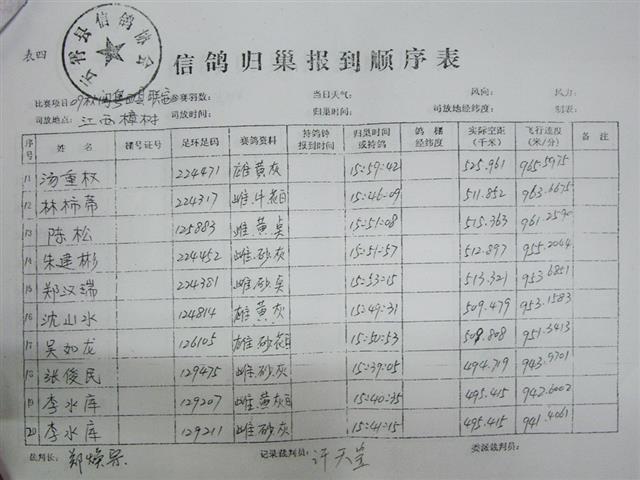 表四
云霄县信鸽协会
信鸽归巢报到顺序表
比赛项目:09秋闽粤四县联 参赛羽数: 当日天气: 风向: 风力:
司放地点: 江西樟树 司放时间: 归巢时间: 司放地经纬度: 制表:
序号 姓名 棚号证号 足环足码 赛鸽资料 持鸽钟报到时间 归巢时间或持鸽 鸽棚经纬度 实际空距(千米) 飞行速度(米/分) 备注
11 汤重权 224471 雄黄灰 15:59:42 525.961 965.5975
12 林柿蒂 224317 雌.牛花目 15:46:09 511.852 963.6675
13 陈松 125883 雌.黄桌 15:51:08 515.363 961.2590
14 朱建彬 224452 雌.砂灰 15:51:57 512.897 955.2044
15 郑汉瑞 224381 雌砂桌 15:53:15 513.321 953.6851
16 沈山水 124814 雄黄灰 15:49:31 509.479 953.1583
17 吴如龙 126105 雄.砂花目 15:50:53 508.808 951.3413
18 张俊民 129475 雌.砂灰 15:39:05 494.719 943.9701
19 李水库 129207 雌.黄灰目 15:40:35 495.415 942.6002
20 李水库 129211 雌.砂灰 15:41:15 495.415 941.4061
裁判长: 郑焕 记录裁判员: 许天 委派裁判员: